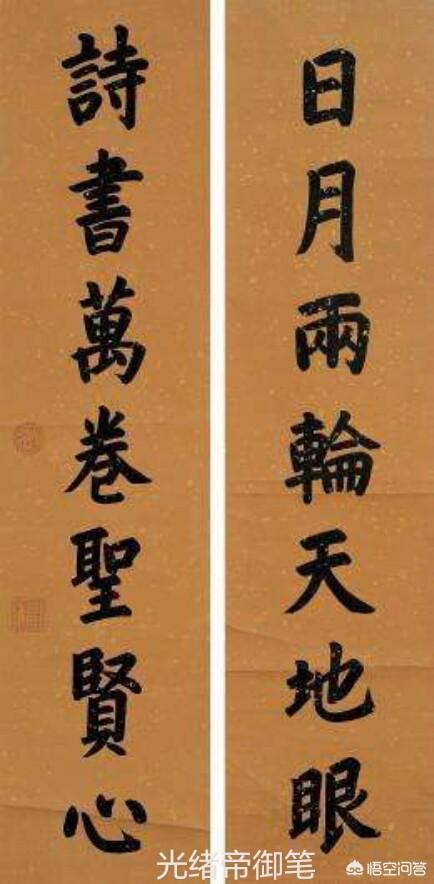 日月兩輪天地眼
詩書萬卷聖賢心
光绪帝御笔
悟空问答